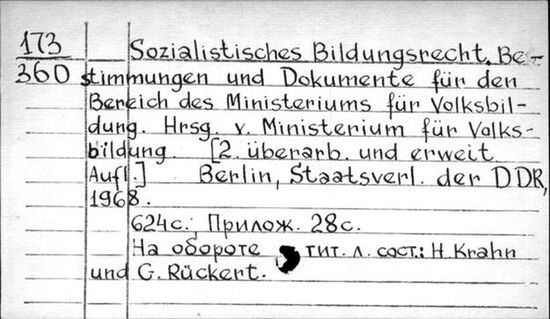 173 Sozialistisches Bildungsrecht. Be-
360 stimmungen und Dokumente für den
Bereich des Ministeriums für Volksbil-
dung. Hrsg. v. Ministerium für Volks-
bildung. [2. überarb. und erweit.
Aufl.] Berlin, Staatsverl. der DDR,
1968.
624с.; Прилож. 28с.
На обороте тит. л. сост.: H. Krahn
und G. Rückert.